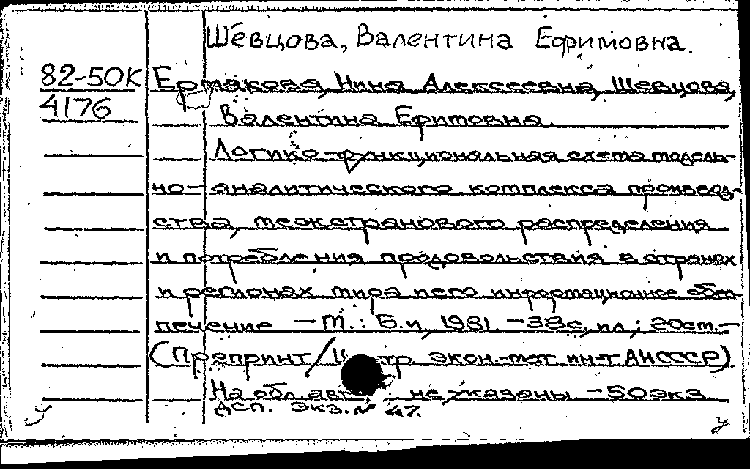 Шевцова, Валентина Ефимовна.
82-50К Ермакова, Нина Алексеевна, Шевцова,
4176 Валентина Ефимовна.
Логико-функциональная схема модель-
но-аналитического комплекса производ-
ства, межстранового распределения
и потребления продовольствия в странах
и регионах мира и его информационное обес-
печение — М.: Б.и, 1981. — 38с, ил.; 20см.—
(Препринт/Центр. экон.-мат. ин-т АН СССР)
На обл. авт. не указаны — 50экз
ДСП. Экз. № 47.
у у